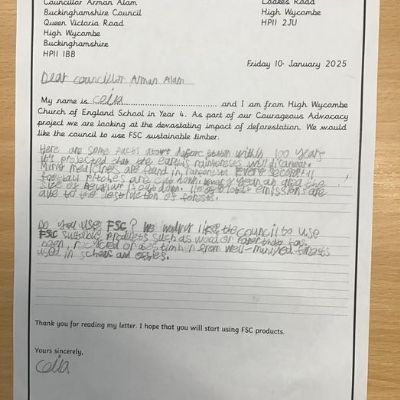 Councillor Arman Alam
Buckinghamshire Council
Queen Victoria Road
High Wycombe
Buckinghamshire
HP11 1BB
Loakes Road
High Wycombe
HP11 2JU
Friday 10 January 2025
Dear councillor Arman Alam
My name is celia and I am from High Wycombe
Church of England School in Year 4. As part of our Courageous Advocacy
project we are looking at the devastating impact of deforestation. We would
like the council to use FSC sustainable timber.
Here are some facts about within 100 years
it's projected that the earth's rainforests
medicines are found in Every second
football pitches are
size of
due to the destruction of forests.
Do you use FSC? We would like the council to use
FSC products such as wood or paper that has
been recycled or from well-managed forests
used in schools and offices.
Thank you for reading my letter. I hope that you will start using FSC products.
Yours sincerely,
celia